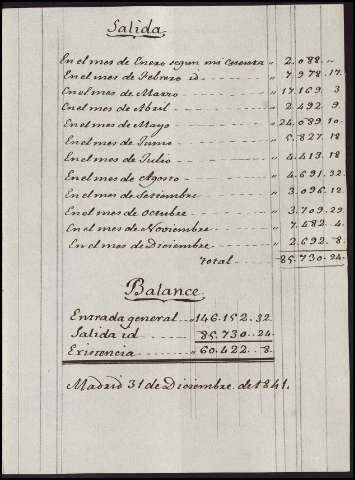 Salida
En el mes de Enero segun mi cuenta " 2.088. "
En el mes de Febrero id " 7.978.17.
En el mes de Marzo " 17.169 3
En el mes de Abril " 2.492 9.
En el mes de Mayo " 24.089 10.
En el mes de Junio " 5.827.18
En el mes de Julio " 4.413.18
En el mes de Agosto " 4.691.32.
En el mes de Setiembre " 3.096.12
En el mes de Octubre " 3.709.29.
En el mes de Noviembre " 7.482.4.
En el mes de Diciembre " 2.692.8.
total 85.730.24.
Balance
Entrada general " 146.152.32.
Salida id 85.730.24.
Existencia " 60.422.8.
Madrid 31 de Diciembre de 1841.